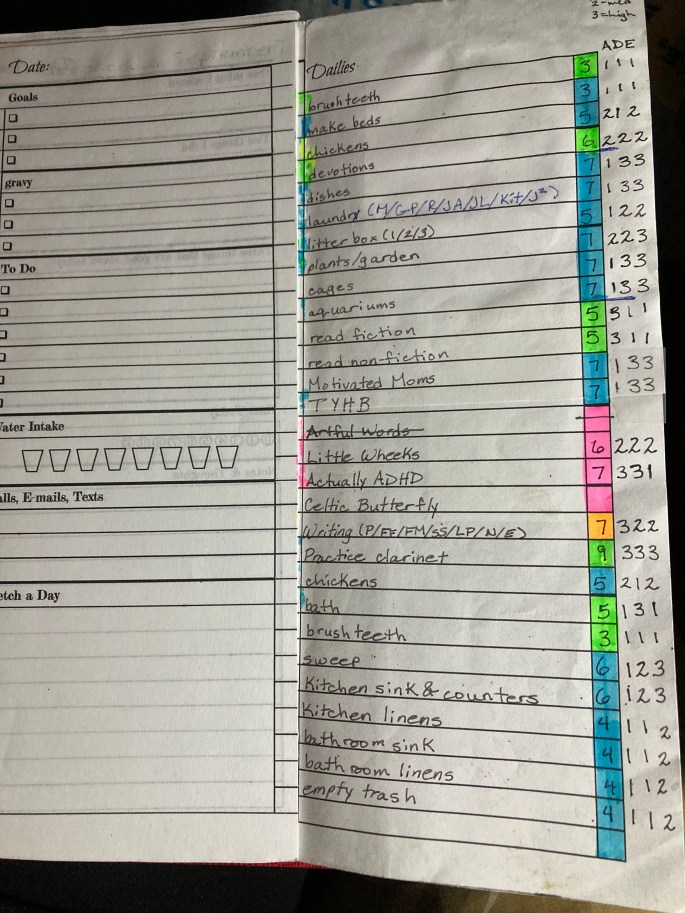 2 = med
3 = high
ADE
Date:
Goals
gravy
To Do
Water Intake
alls, E-mails, Texts
etch a Day
Dailies
brush teeth 3 111
make beds 3 111
chickens 5 212
devotions 6 222
dishes 7 133
laundry (M/GP/R/JA/JL/Kit/J²) 7 133
litter box (1/2/3) 5 122
plants/garden 7 223
cages 7 133
aquariums 7 133
read fiction 5 311
read non-fiction 5 311
Motivated Moms 7 133
TYHB 7 133
Artful Words
Little Wheeks 6 222
Actually ADHD 7 331
Celtic Butterfly
Writing (P/FF/FM/SS/LP/N/E) 7 322
Practice clarinet 9 333
chickens 5 212
bath 5 131
brush teeth 3 111
sweep 6 123
Kitchen sink & counters 6 123
Kitchen linens 4 112
bathroom sink 4 112
bathroom linens 4 112
empty trash 4 112